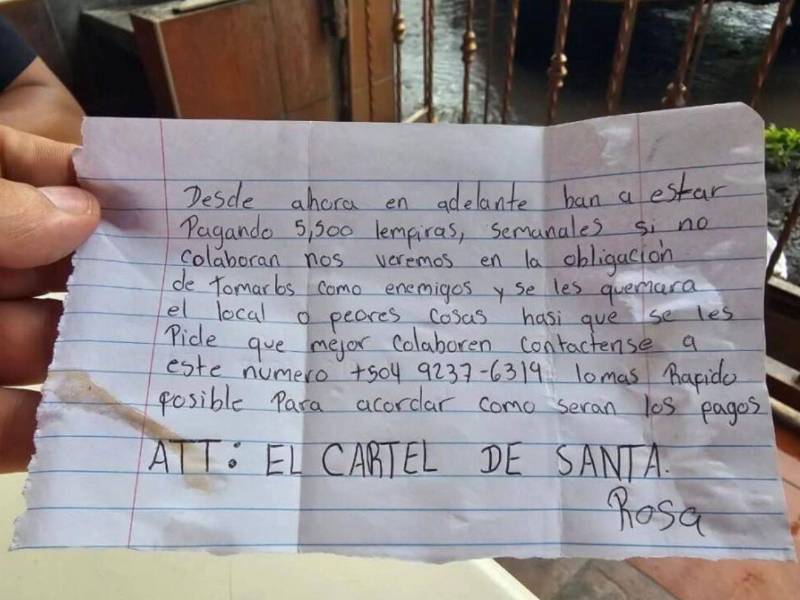 Desde ahora en adelante ban a estar
Pagando 5,500 lempiras, semanales si no
colaboran nos veremos en la obligación
de tomarlos como enemigos y se les quemara
el local o peores cosas hasi que se les
Pide que mejor colaboren contactense a
este numero +504 9237-6319 lo mas Rapido
posible Para acordar como seran los pagos
ATT: EL CARTEL DE SANTA.
Rosa